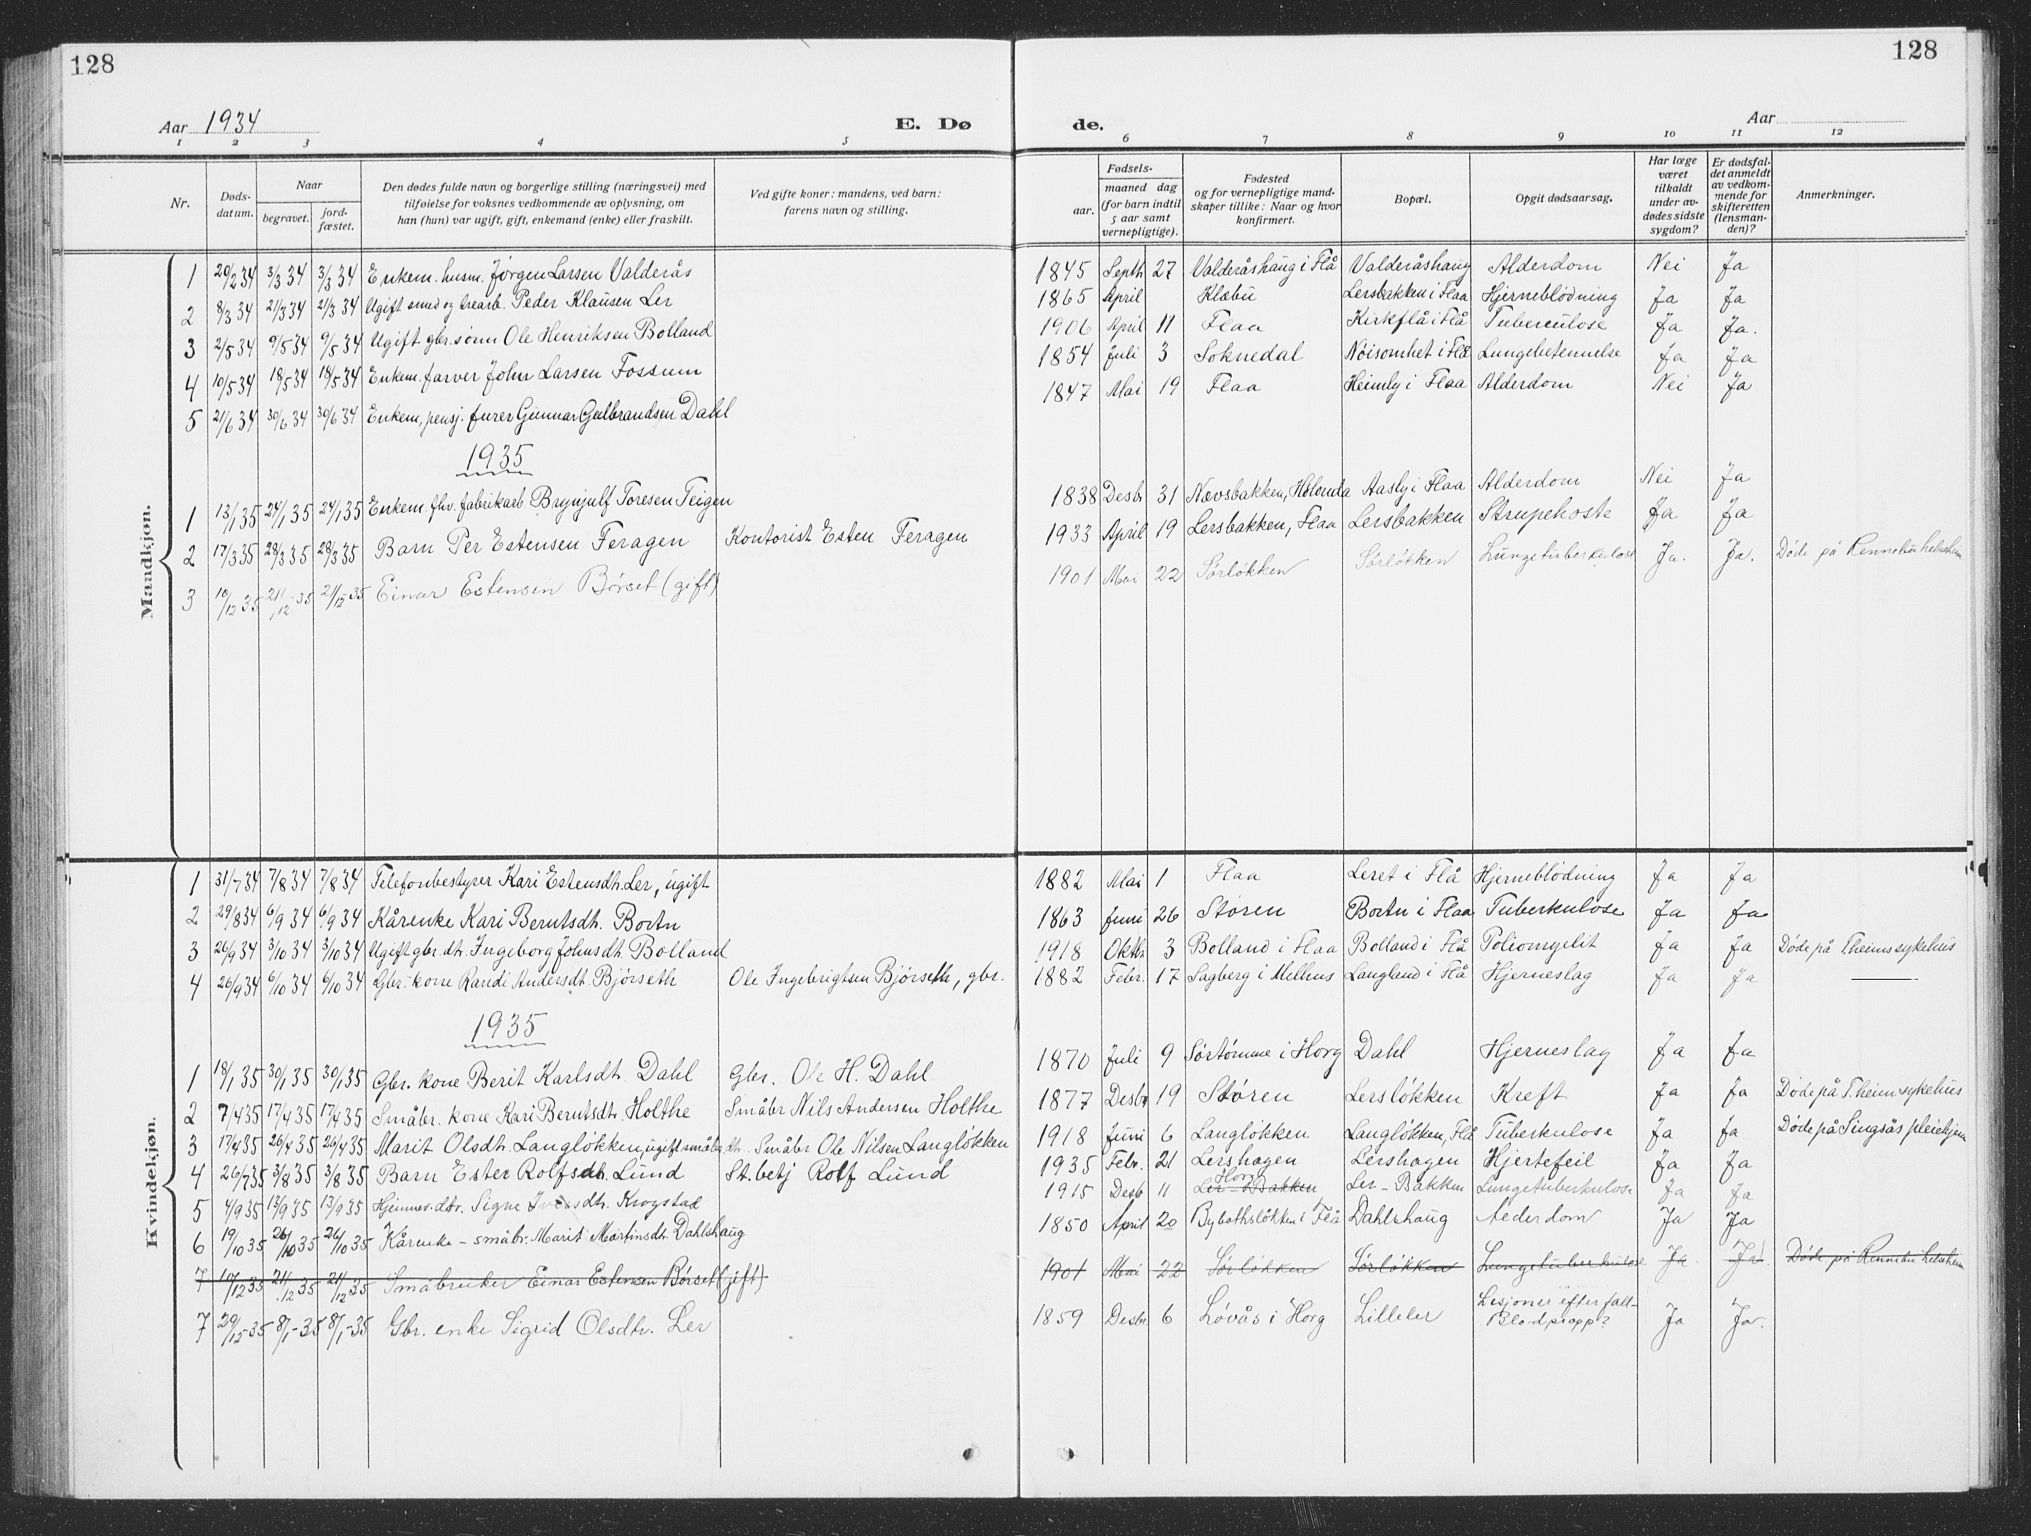 128
128
Aar 1934
E. Dø
de.
Aar
1 2 3 4 5 6 7 8 9 10 11 12
Nr.
Døds-
datum.
Naar
begravet.
jord-
fæstet.
Den dødes fulde navn og borgerlige stilling (næringsvei) med
tilføielse for voksnes vedkommende av oplysning, om
han (hun) var ugift, gift, enkemand (enke) eller fraskilt.
Ved gifte koner: mandens, ved barn:
farens navn og stilling.
Fødsels-
aar.
maaned dag
(for barn indtil
5 aar samt
vernepligtige).
Fødested
og for vernepligtige mand-
skaper tillike: Naar og hvor
konfirmert.
Bopæl.
Opgit dødsaarsag.
Har læge
været
tilkaldt
under av-
dødes sidste
sygdom?
Er dødsfal-
det anmeldt
av vedkom-
mende for
skifteretten
(lensman-
den)?
Anmerkninger.
Mandkjøn.
1 20/2 34 3/3 34 3/3 34 Enkem. husm. Jørgen Larsen Valderås 1845 Septb 27 Valderåshaug i Flå Valderåshaug Alderdom Nei Ja
2 8/3 34 21/3 34 21/3 34 Ugift smed og trearb. Peder Klausen Ler 1865 April Klæbu Lersbakken i Flaa Hjerneblödning Ja Ja
3 2/5 34 9/5 34 9/5 34 Ugift gbr.sønn Ole Henriksen Bolland 1906 April 11 Flaa Kirkflå i Flå Tuberculose Ja Ja.
4 10/5 34 18/5 34 18/5 34 Enkem. farver John Larsen Fossum 1854 Juli 3 Soknedal Nöisomhet i Flå Lungebetennelse Ja Ja
5 21/6 34 30/6 34 30/6 34 Enkem, pensj. furer Gunnar Gulbrandsen Dahl 1847 Mai 19 Flaa Heimly i Flaa Alderdom Nei Ja
1935
1 13/1 35 24/1 35 24/1 35 Enkem. fhv. fabrikarb Brynjulf Toresen Teigen 1838 Desbr 31 Nævsbakken, Hølonda Aasly i Flaa Alderdom Nei Ja
2 17/3 35 28/3 35 28/3 35 Barn Per Estensen Feragen Kontorist Esten Feragen 1933 April 19 Lersbakken, Flaa Lersbakken Strupehoste Ja Ja
3 10/12 35 21/12 35 21/12 35 Einar Estensen Børset (gift) 1901 Mai 22 Sørløkken Sørløkken Lungetuberkulose Ja. Ja. Døde på Rennebu helseheim
Kvindekjøn.
1 31/7 34 7/8 34 7/8 34 Telefonbestyrer Kari Estensdtr. Ler, ugift 1882 Mai 1 Flaa Leret i Flå Hjerneblödning Ja Ja
2 29/8 34 6/9 34 6/9 34 Kårenke Kari Berntsdtr. Bortn 1863 Juni 26 Støren Bortn i Flaa Tuberkulose Ja Ja
3 26/9 34 3/10 34 3/10 34 Ugift gbr. dtr. Ingeborg Johnsdtr. Bolland 1918 Oktbr 3 Bolland i Flaa Bolland i Flå Poliomyelit Ja Ja Døde på T.heims sykehus
4 26/9 34 6/10 34 6/10 34 Gbr. kone Randi Andersdtr. Bjørseth Ole Ingebrigtsen Bjørseth, gbr. 1882 Febr. 17 Sagberg i Melhus Langland i Flå Hjerneslag Ja Ja —
1935
1 18/1 35 30/1 35 30/1 35 Gbr. kone Berit Karlsdtr. Dahl Gbr. Ole H. Dahl 1870 Juli 9 Sørtømme i Horg Dahl Hjerneslag Ja Ja
2 7/4 35 17/4 35 17/4 35 Småbr. kone Kari Berntsdtr. Holthe Småbr Nils Andersen Holthe 1877 Desbr 19 Støren Lersløkken Kreft Ja Ja Døde på T.heim sykehus
3 17/4 35 26/4 35 26/4 35 Marit Olsdtr. Langløkken, ugift småbr. dtr. Småbr Ole Nilsen Langløkken 1918 Juni 6 Langløkken Langløkken, Flå Tuberkulose Ja Ja Døde på Singsås pleiehjem
4 26/7 35 3/8 35 3/8 35 Barn Ester Rolfsdtr. Lund St.betj Rolf Lund 1935 Febr. 21 Lershagen Lershagen Hjertefeil Ja Ja
5 4/9 35 13/9 35 13/9 35 Hjemmev. dtr. Signe Iversdtr. Krogstad 1915 Desb 11 Ler-Bakken Horg Ler-Bakken Lungetuberkulose Ja Ja
6 19/10 35 26/10 35 26/10 35 Kårenke - småbr. Marit Martinsdtr. Dahlshaug 1850 April 20 Bybothsløkken i Flå Dahlshaug Alderdom Ja Ja
7 10/12 35 21/12 35 21/12 35 Småbruker Einar Estensen Børset (gift) 1901 Mai 22 Sørløkken Sørløkken Lungetuberkulose Ja Ja Døde på Rennebu helseheim
7 29/12-35 8/1-35 8/1-35 Gbr. enke Sigrid Olsdtr. Ler 1859 Desbr 6 Løvås i Horg Lilleler Lesjoner efter fall- Blodpropp? Ja Ja.